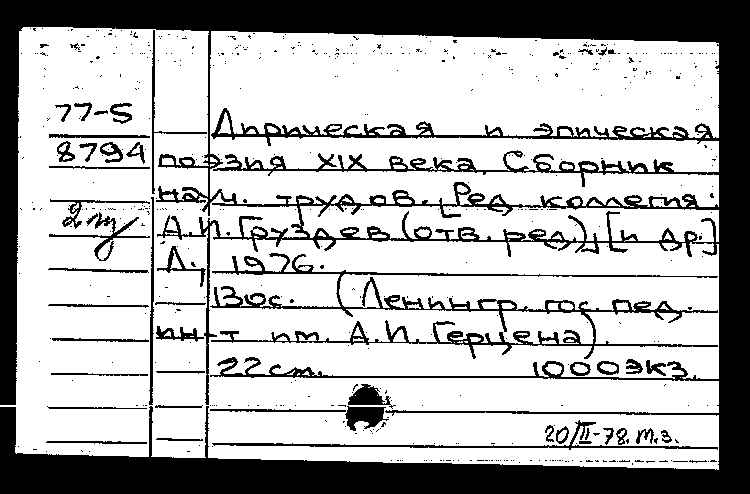 77-5
8794
2 экз
Лирическая и эпическая
поэзия XIX века. Сборник
науч. трудов. [Ред. коллегия:
А.И. Груздев (отв. ред.)] [и др.]
Л., 1976.
130с. (Ленингр. гос. пед.
ин-т им. А.И. Герцена).
22 см. 1000 экз.
20/II-78. т.з.